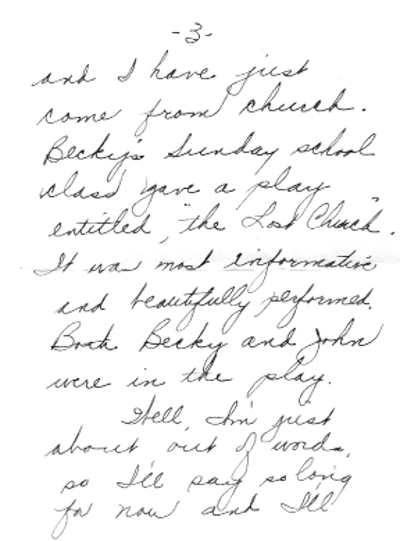 -3-
and I have just
come from church.
Becky's Sunday school
class gave a play
entitled, "the Lost Church".
It was most informative
and beautifully performed.
Both Becky and John
were in the play.
Well, I'm just
about out of words,
so I'll say so long
for now and I'll